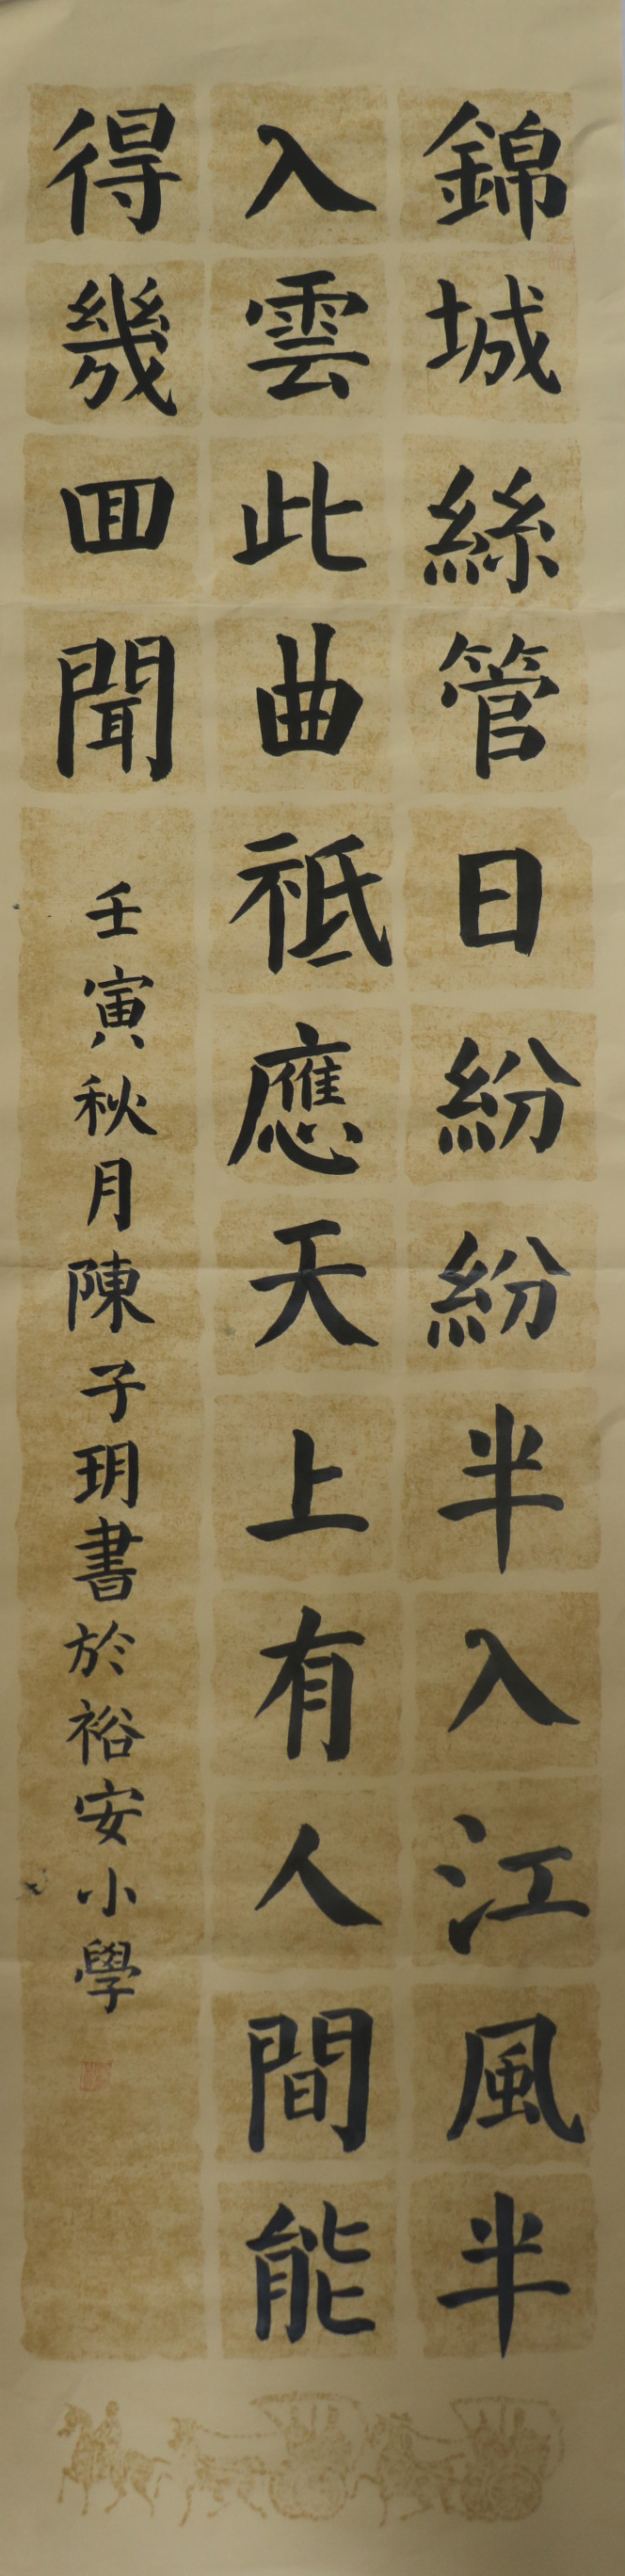 錦城絲管日紛紛半入江風半
入雲此曲祗應天上有人間能
得幾回聞
壬寅秋月陳子玥書於裕安小學